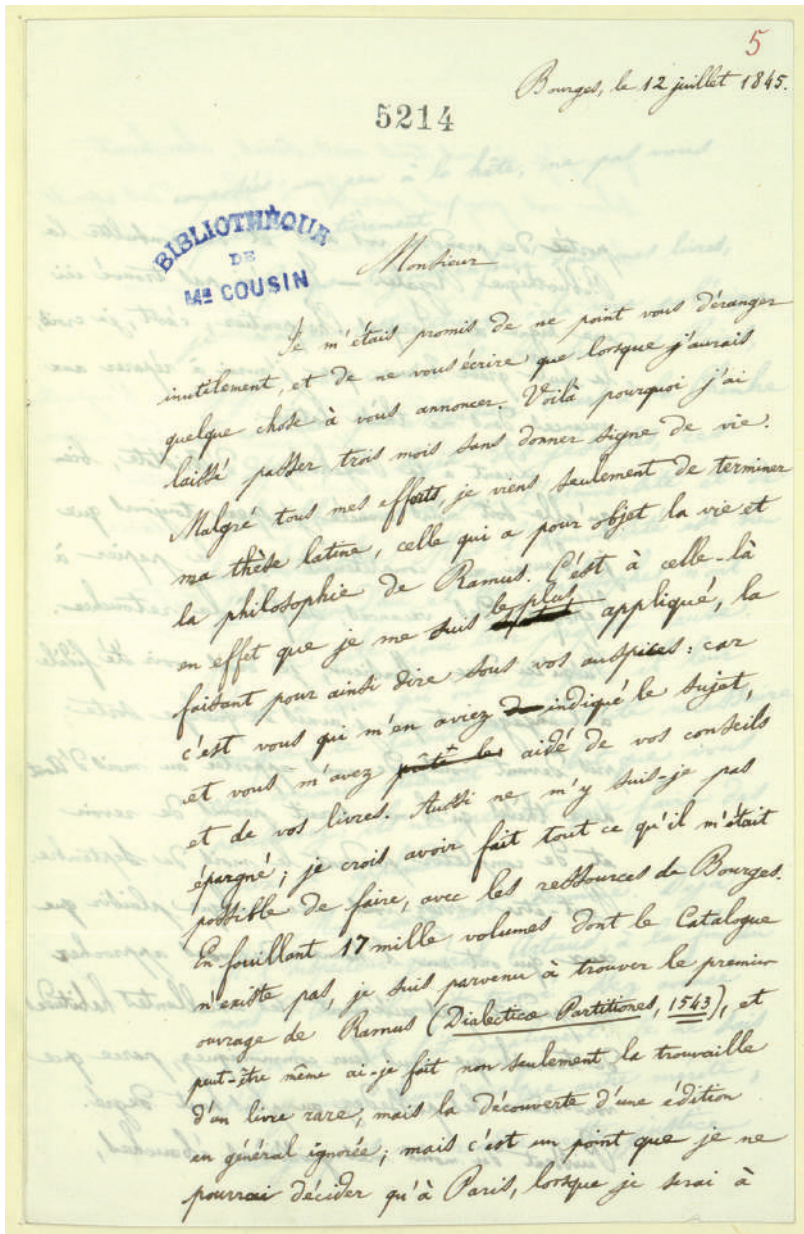 5
Bourges, le 12 juillet 1845.
5214
BIBLIOTHÈQUE
DE
MR COUSIN
Monsieur
Je m'étais promis de ne point vous déranger
inutilement, et de ne vous écrire que lorsque j'aurais
quelque chose à vous annoncer. Voilà pourquoi j'ai
laissé passer trois mois sans donner signe de vie.
Malgré tous mes efforts, je viens seulement de terminer
ma thèse latine, celle qui a pour objet la vie et
la philosophie de Ramus. C'est à celle-là
en effet que je me suis le plus appliqué, la
faisant pour ainsi dire sous vos auspices: car
c'est vous qui m'en aviez indiqué le sujet,
et vous m'avez aidé de vos conseils
et de vos livres. Aussi ne m'y suis-je pas
épargné; je crois avoir fait tout ce qu'il m'était
possible de faire, avec les ressources de Bourges.
En fouillant 17 mille volumes dont le Catalogue
n'existe pas, je suis parvenu à trouver le premier
ouvrage de Ramus (Dialecticæ Partitiones, 1543), et
peut-être même ai-je fait non seulement la trouvaille
d'un livre rare, mais la découverte d'une édition
en général ignorée; mais c'est un point que je ne
pourrai décider qu'à Paris, lorsque je serai à